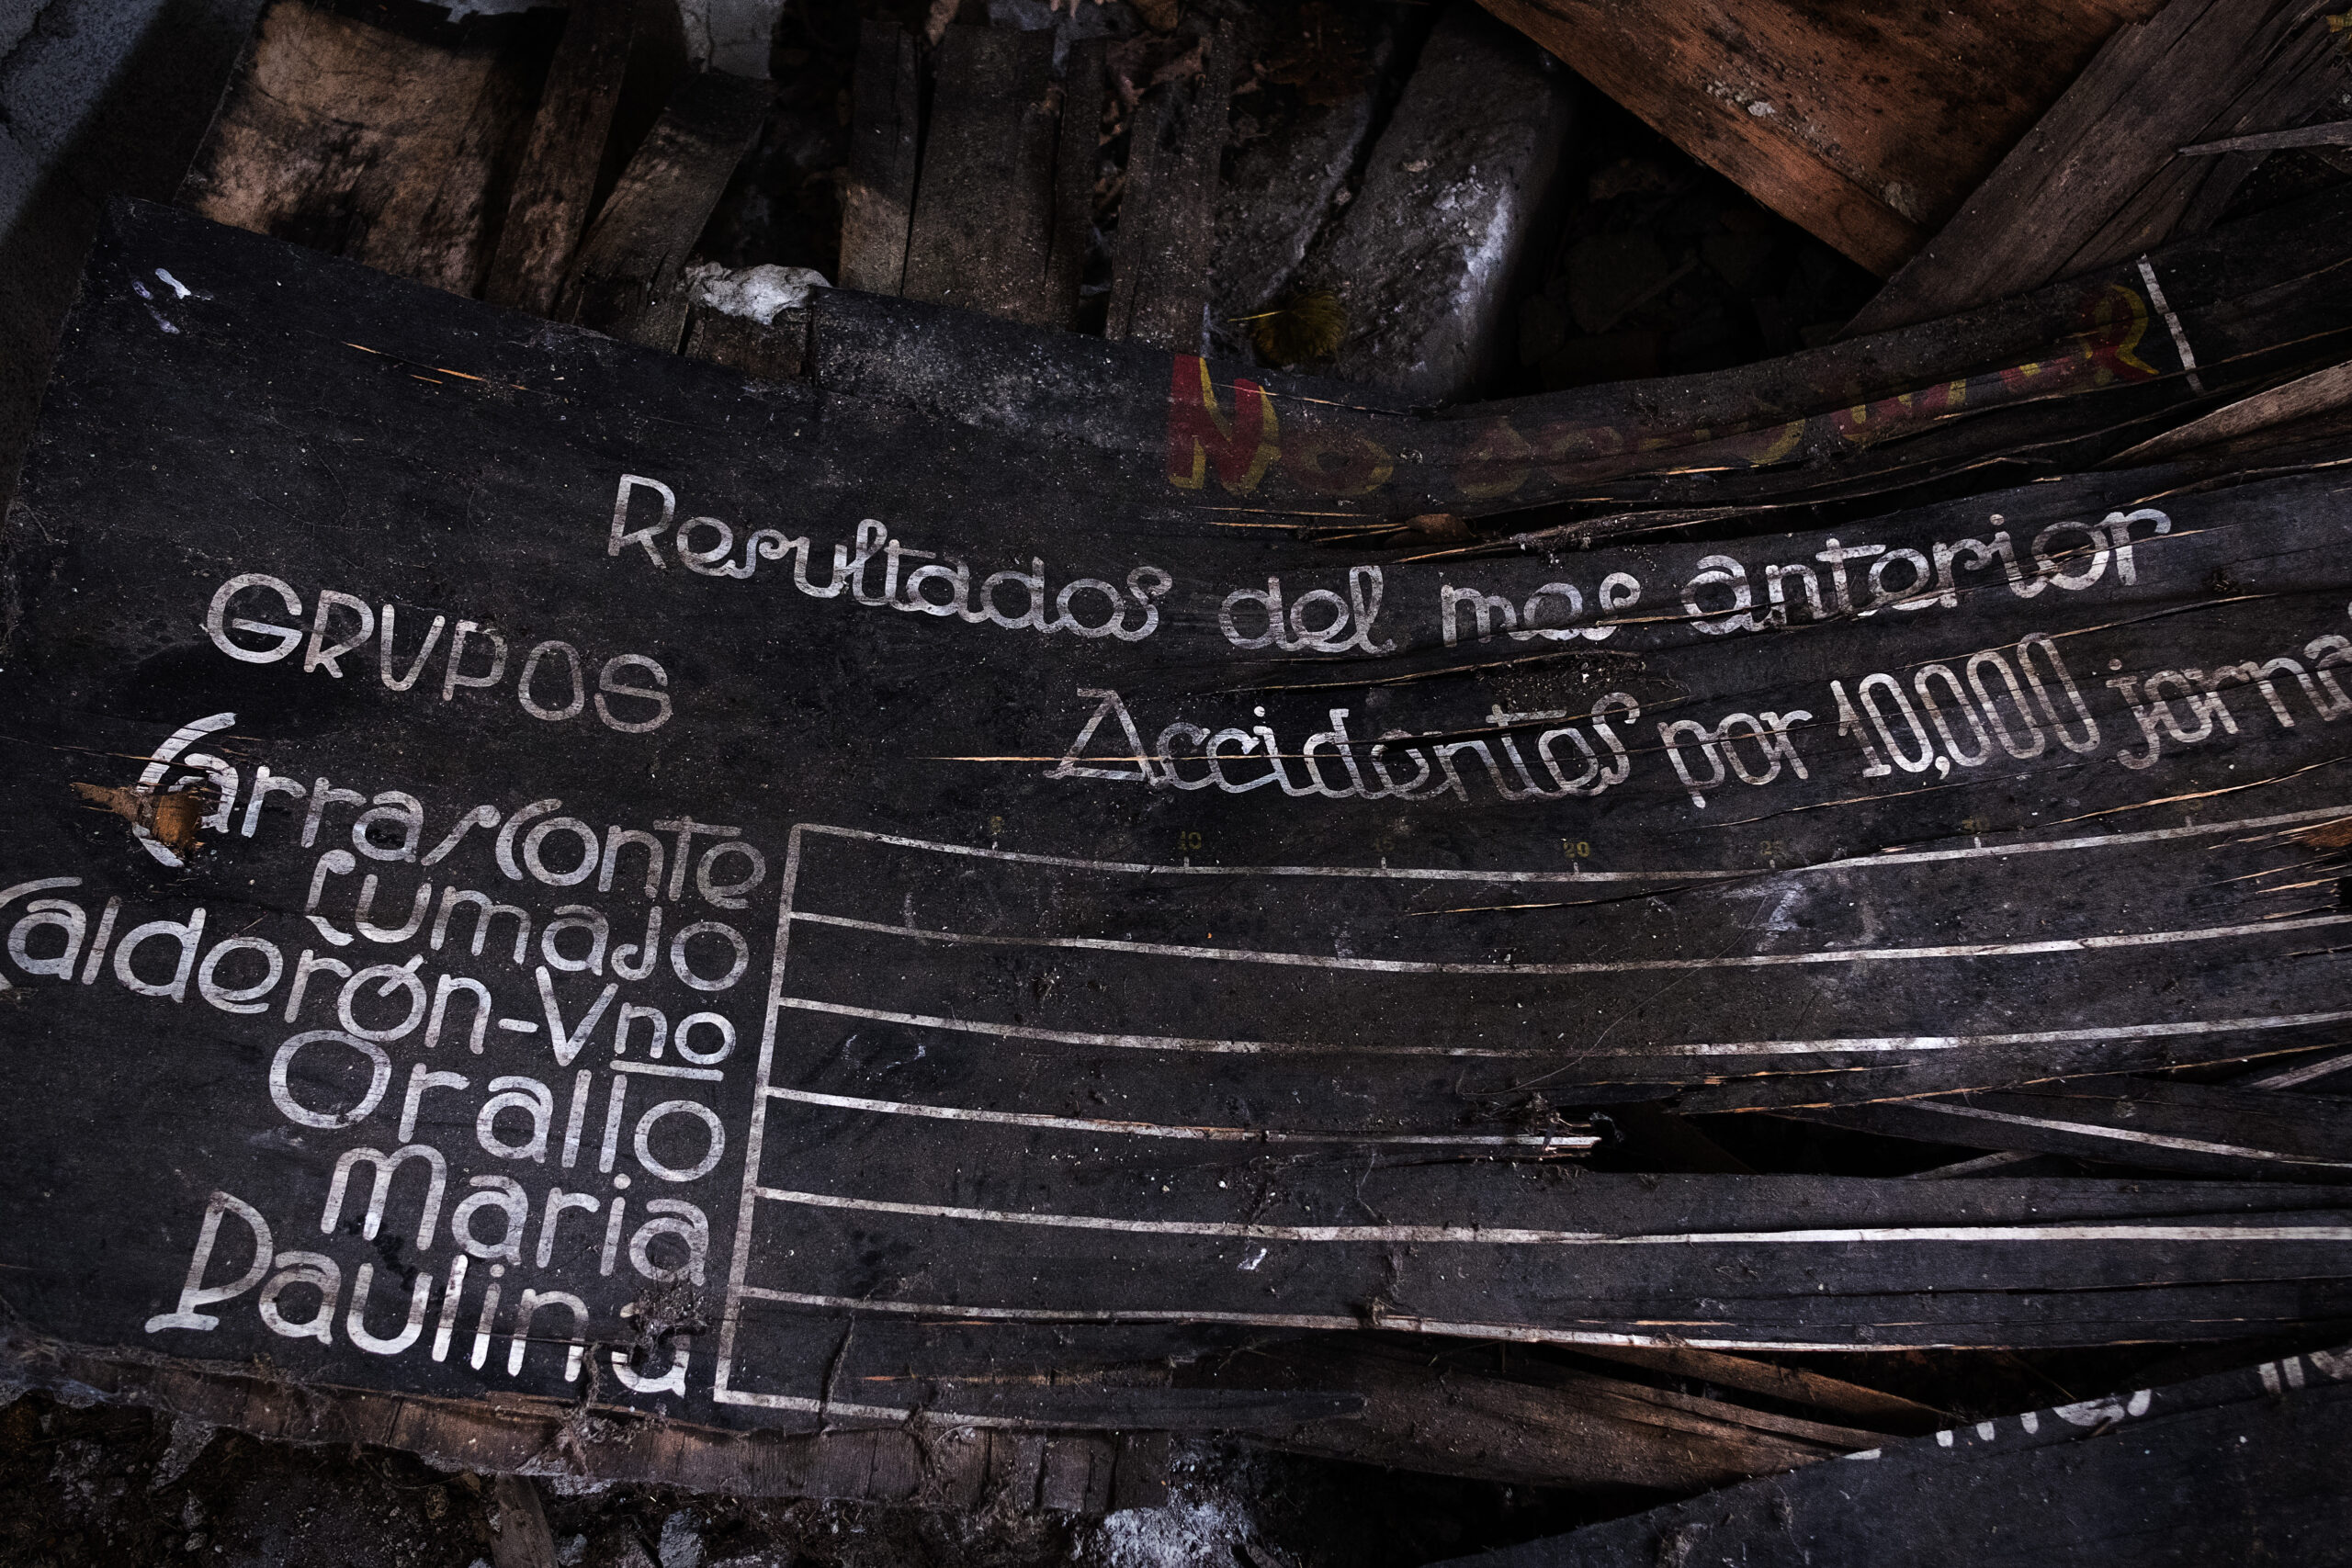 No
Resultados del mes anterior
GRUPOS
Accidentes por 10,000 jorna
5 10 15 20 25 30
Carrasconte
Lumajo
Calderón-Vno
Orallo
maria
Paulina